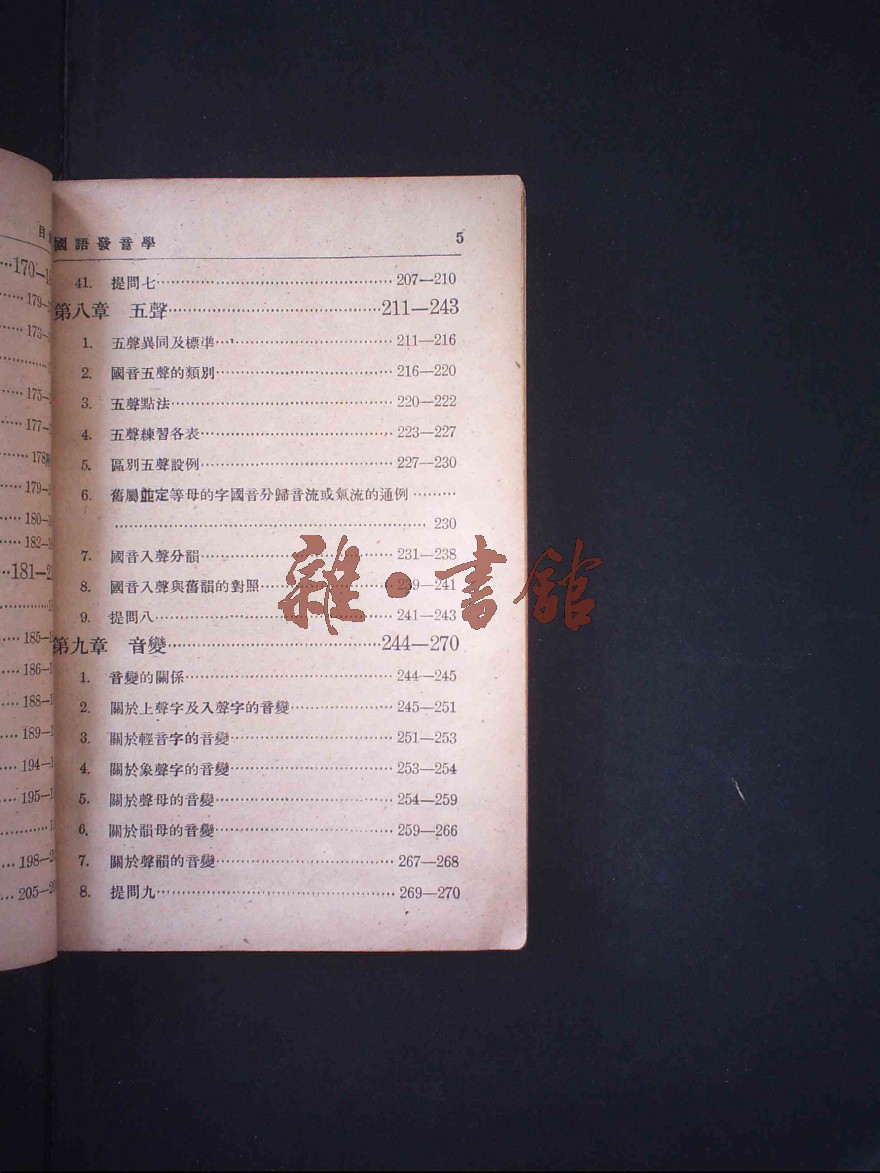 目
170—1
179—
173—
175—
177—
178
179—
180—
182—
181—2
185—
186—
188—1
189—
194—1
195—1
198—2
205—2
國語發音學 5
41. 提問七 207—210
第八章 五聲 211—243
1. 五聲異同及標準 211—216
2. 國音五聲的類別 216—220
3. 五聲點法 220—222
4. 五聲練習各表 223—227
5. 區別五聲設例 227—230
6. 舊屬並定等母的字國音分歸音流或氣流的通例
230
7. 國音入聲分韻 231—238
8. 國音入聲與舊韻的對照 239—241
9. 提問八 241—243
第九章 音變 244—270
1. 音變的關係 244—245
2. 關於上聲字及入聲字的音變 245—251
3. 關於輕音字的音變 251—253
4. 關於象聲字的音變 253—254
5. 關於聲母的音變 254—259
6. 關於韻母的音變 259—266
7. 關於聲韻的音變 267—268
8. 提問九 269—270
雜·書館